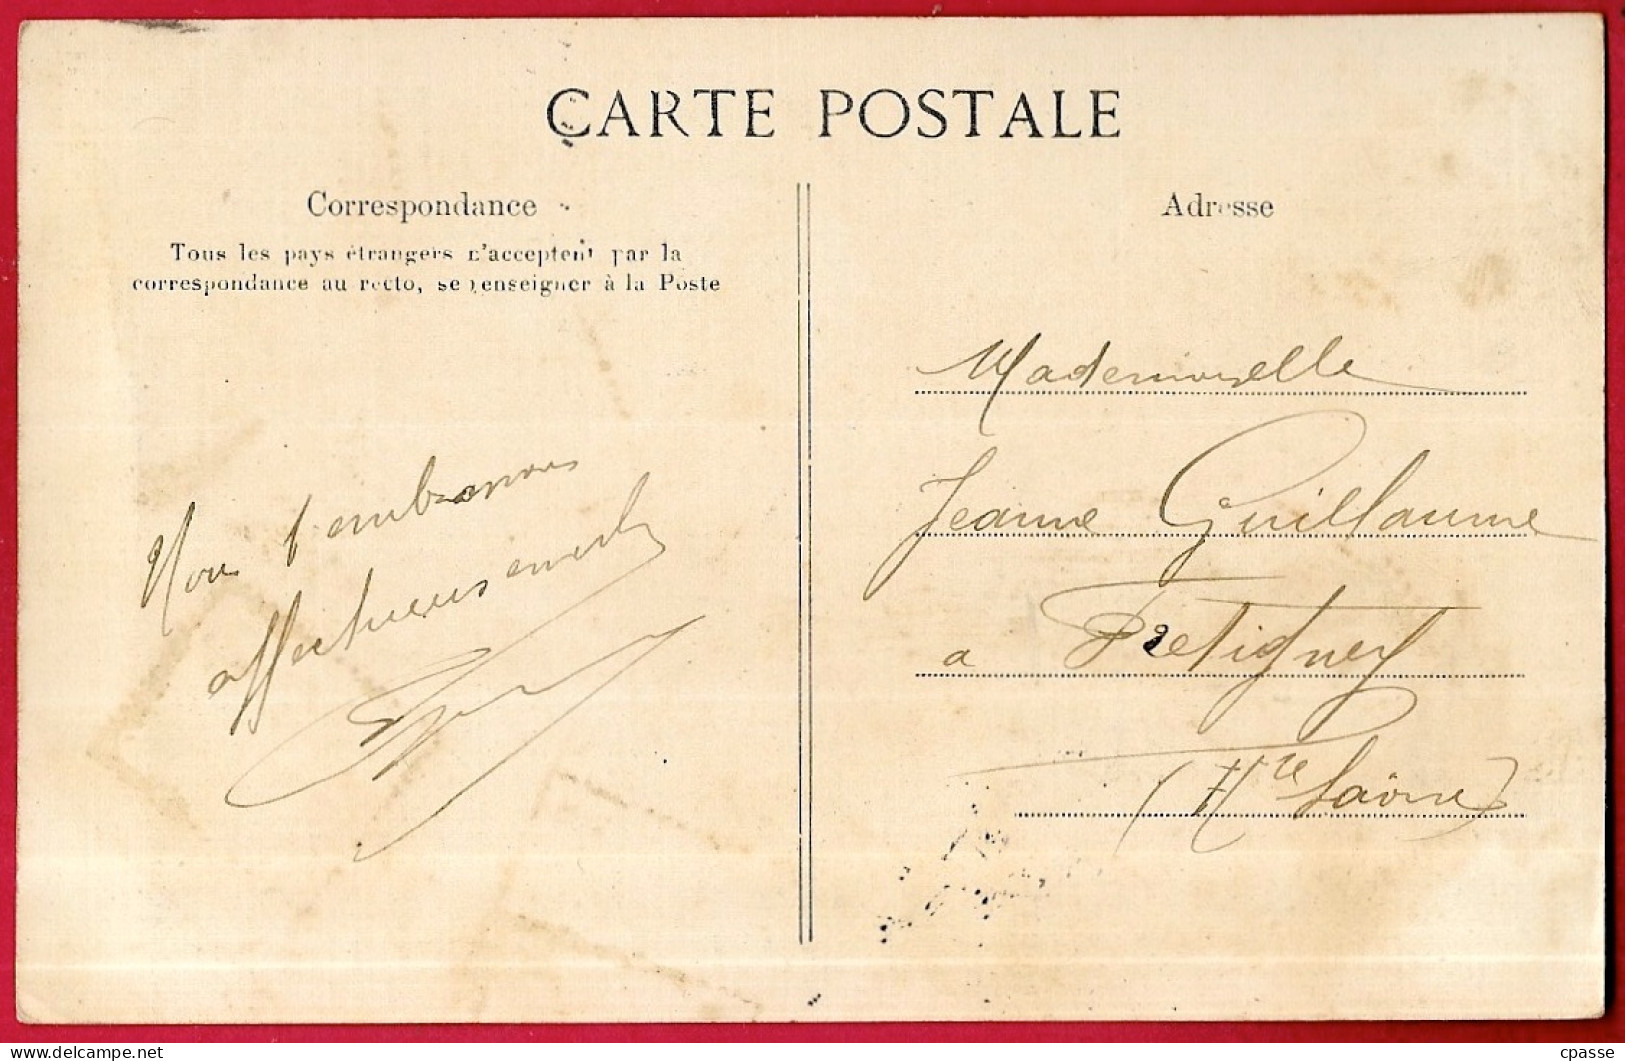 CARTE POSTALE
Correspondance
Tous les pays étrangers n'acceptent par la
correspondance au recto, se renseigner à la Poste
Nous t'embrassons
affectueusement
Adresse
Mademoiselle
Jeanne Guillaume
a Fretigney
(Hte Saône)
delcampe.net
cpasse